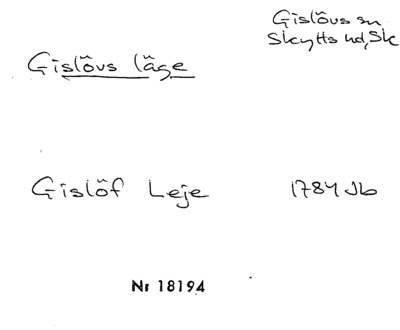 Gislövs sn
Skytts hd, Sk
Gislövs läge
Gislöf Leje 1784 Jb
Nr 18194